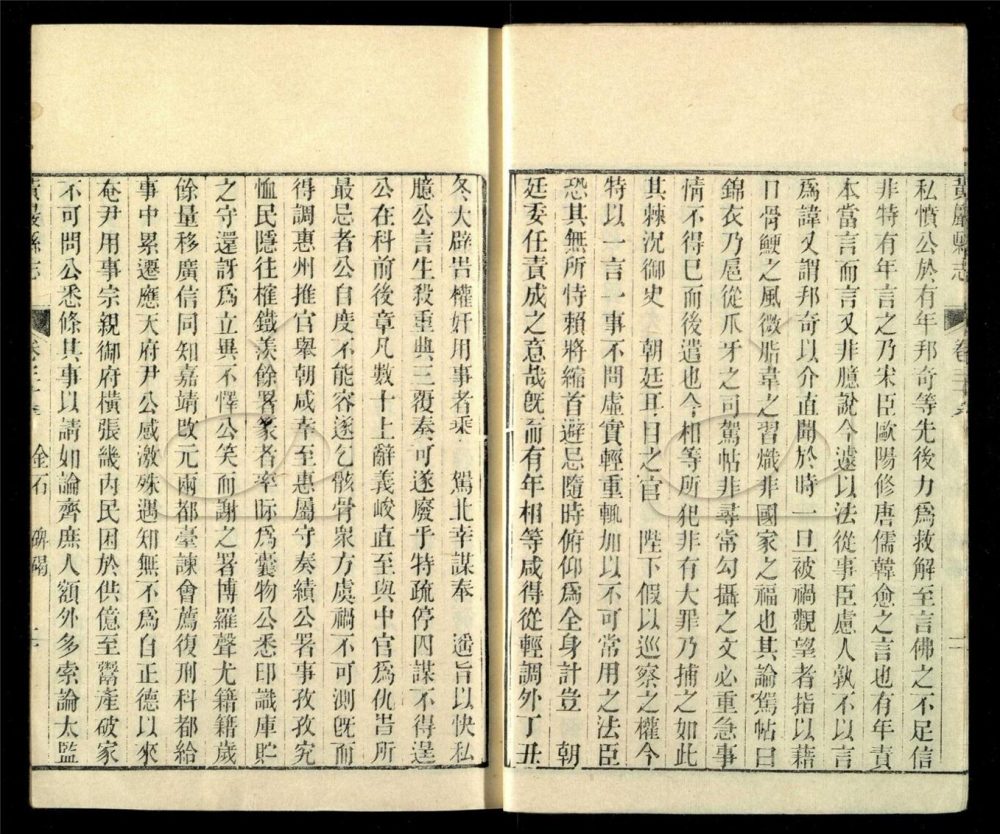 黃巖縣志
私憤公於有年邦奇等先後力爲救解至言佛之不足信
非特有年言之乃宋臣歐陽修唐儒韓愈之言也有年責
本當言而言又非臆說今遽以法從事臣慮人孰不以言
爲諱又謂邦奇以介直聞於時一旦被禍觀望者指以藉
口骨鯁之風微脂韋之習熾非國家之福也其論駕帖曰
錦衣乃扈從爪牙之司駕帖非尋常勾攝之文必重急事
情不得已而後遣也今相等所犯非有大罪乃捕之如此
其棘況御史 朝廷耳目之官 陛下假以巡察之權今
特以一言一事不問虛實輕重輒加以不可常用之法臣
恐其無所恃賴將縮首避忌隨時俯仰爲全身計豈 朝
廷委任責成之意哉旣而有年相等咸得從輕調外丁丑
冬大辟旹權奸用事者乘 駕北幸謀奉 遥旨以快私
臆公言生殺重典三覆奏可遂廢乎特疏停囚謀不得逞
公在科前後章凡數十上辭義峻直至與中官爲仇旹所
最忌者公自度不能容遂乞骸骨衆方虞禍不可測旣而
得調惠州推官舉朝咸幸至惠屬守奏績公署事孜孜究
恤民隱往榷鐵羨餘署篆者率眎爲囊物公悉印識庫貯
之守還訝爲立異不懌公笑而謝之署博羅聲尤籍籍歲
餘量移廣信同知嘉靖改元兩都臺諫會薦復刑科都給
事中累遷應天府尹公感激殊遇知無不爲自正德以來
奄尹用事宗親御府橫張畿內民困於供億至鬻產破家
不可問公悉條其事以請如論齊庶人額外多索論太監
黃巖縣志 金石 碑碣